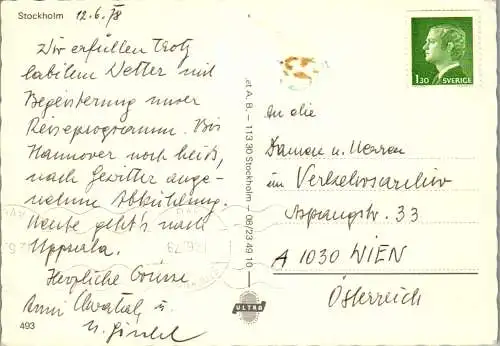 Stockholm 12.6.78
Wir erfüllen trotz
labilem Wetter mit
Begeisterung unser
Reiseprogramm. Bis
Hannover noch heiß,
nach Gewitter ange-
nehme Abkühlung.
Heute geht's nach
Uppsala.
Herzliche Grüsse
Anni u.
493
et A. B. – 113 30 Stockholm – 08/23 49 10
ULTRA
1.30 SVERIGE
An die
Damen u. Herren
im Verkehrsarchiv
Aspangstr. 33
A 1030 WIEN
Österreich